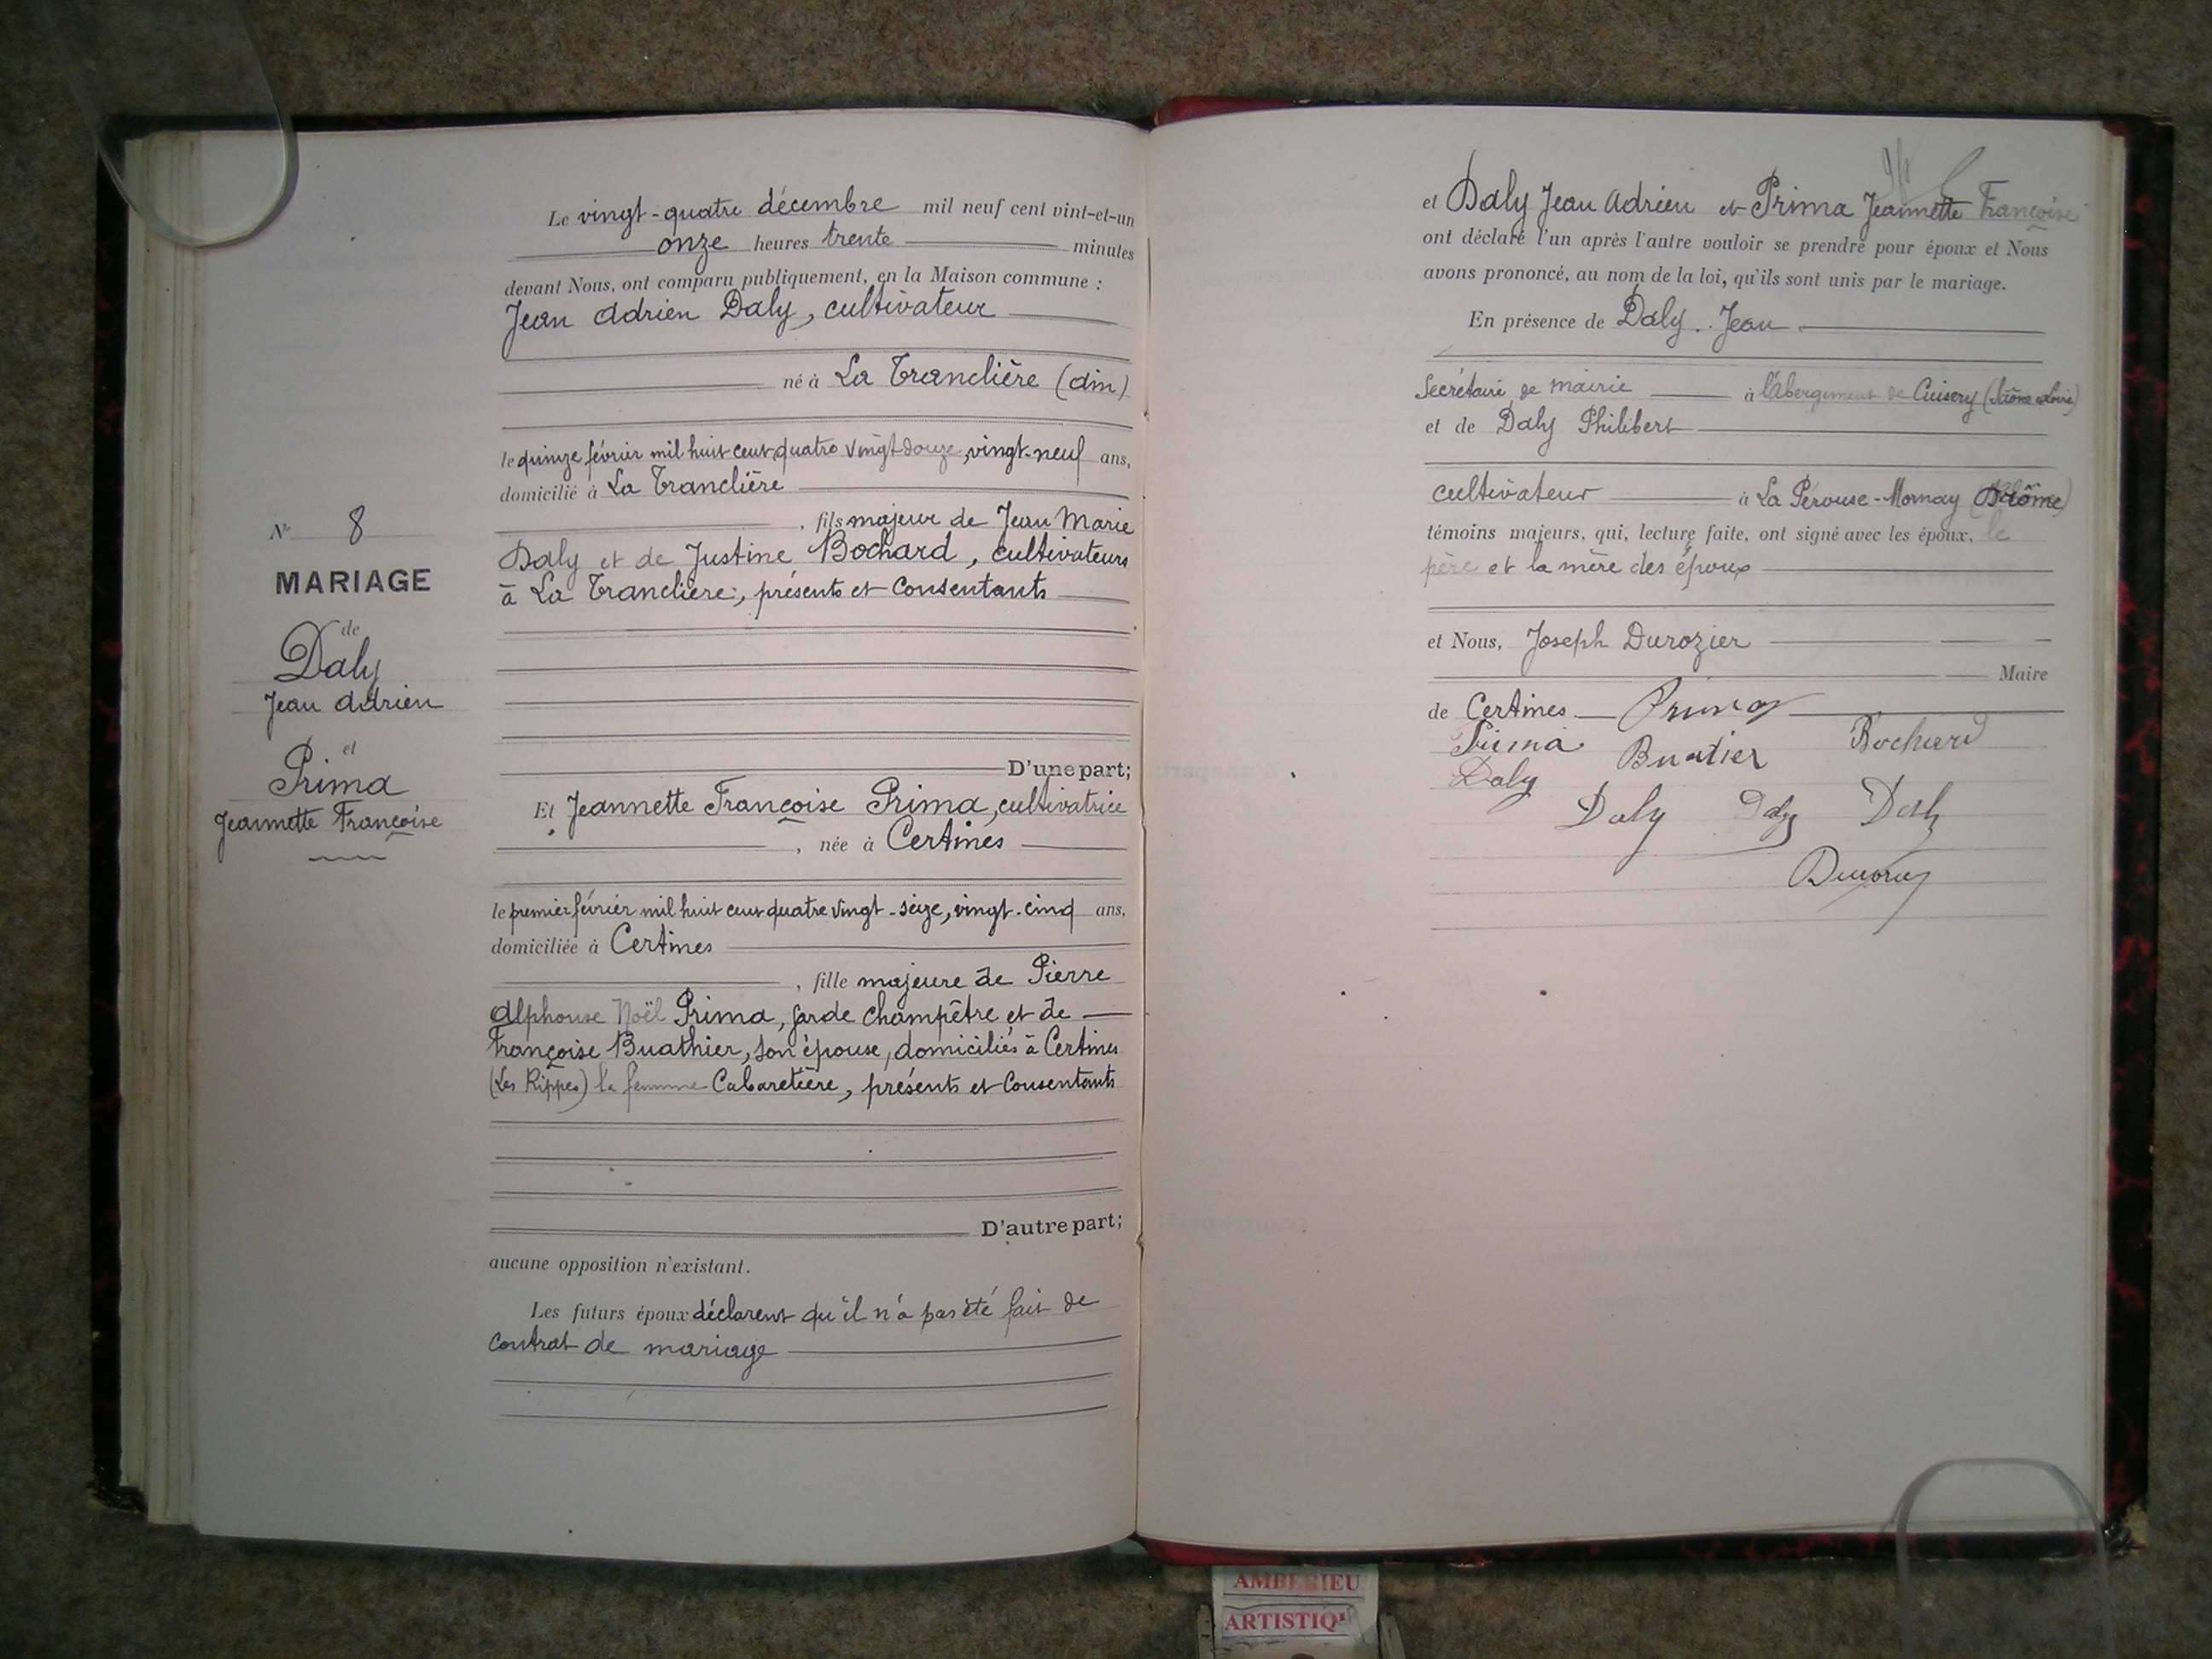 Le vingt-quatre décembre mil neuf cent vint-et-un
onze heures trente minutes
devant Nous, ont comparu publiquement, en la Maison commune :
Jean Adrien Daly, cultivateur
né à La Tranclière (Ain)
le quinze février mil huit cent quatre vingt douze, vingt-neuf ans,
domicilié à La Tranclière
, fils majeur de Jean Marie
Daly et de Justine Bochard, cultivateurs
à La Tranclière, présents et consentants
N° 8
MARIAGE
de
Daly
Jean Adrien
et
Prima
Jeannette Françoise
D'une part;
Et Jeannette Françoise Prima, cultivatrice
, née à Certines
le premier février mil huit cent quatre vingt-seize, vingt-cinq ans,
domiciliée à Certines
, fille majeure de Pierre
Alphonse Noël Prima, garde champêtre et de
Françoise Buathier, son épouse, domiciliés à Certines
(Les Rippes) la femme Cabaretière, présents et consentants
D'autre part;
aucune opposition n'existant.
Les futurs époux déclarent qu'il n'a pas été fait de
contrat de mariage
et Daly Jean Adrien et Prima Jeannette Françoise
ont déclaré l'un après l'autre vouloir se prendre pour époux et Nous
avons prononcé, au nom de la loi, qu'ils sont unis par le mariage.
En présence de Daly Jean
Secrétaire de mairie à l'Abergement de Cuisery (Saône et Loire)
et de Daly Philibert
cultivateur à La Pérouse-Mornay (Drôme)
témoins majeurs, qui, lecture faite, ont signé avec les époux, le
père et la mère des époux
et Nous, Joseph Durozier
Maire
de Certines Prima
Prima Buatier Bochard
Daly
Daly Daly Daly
AMBERIEU
ARTISTIQU